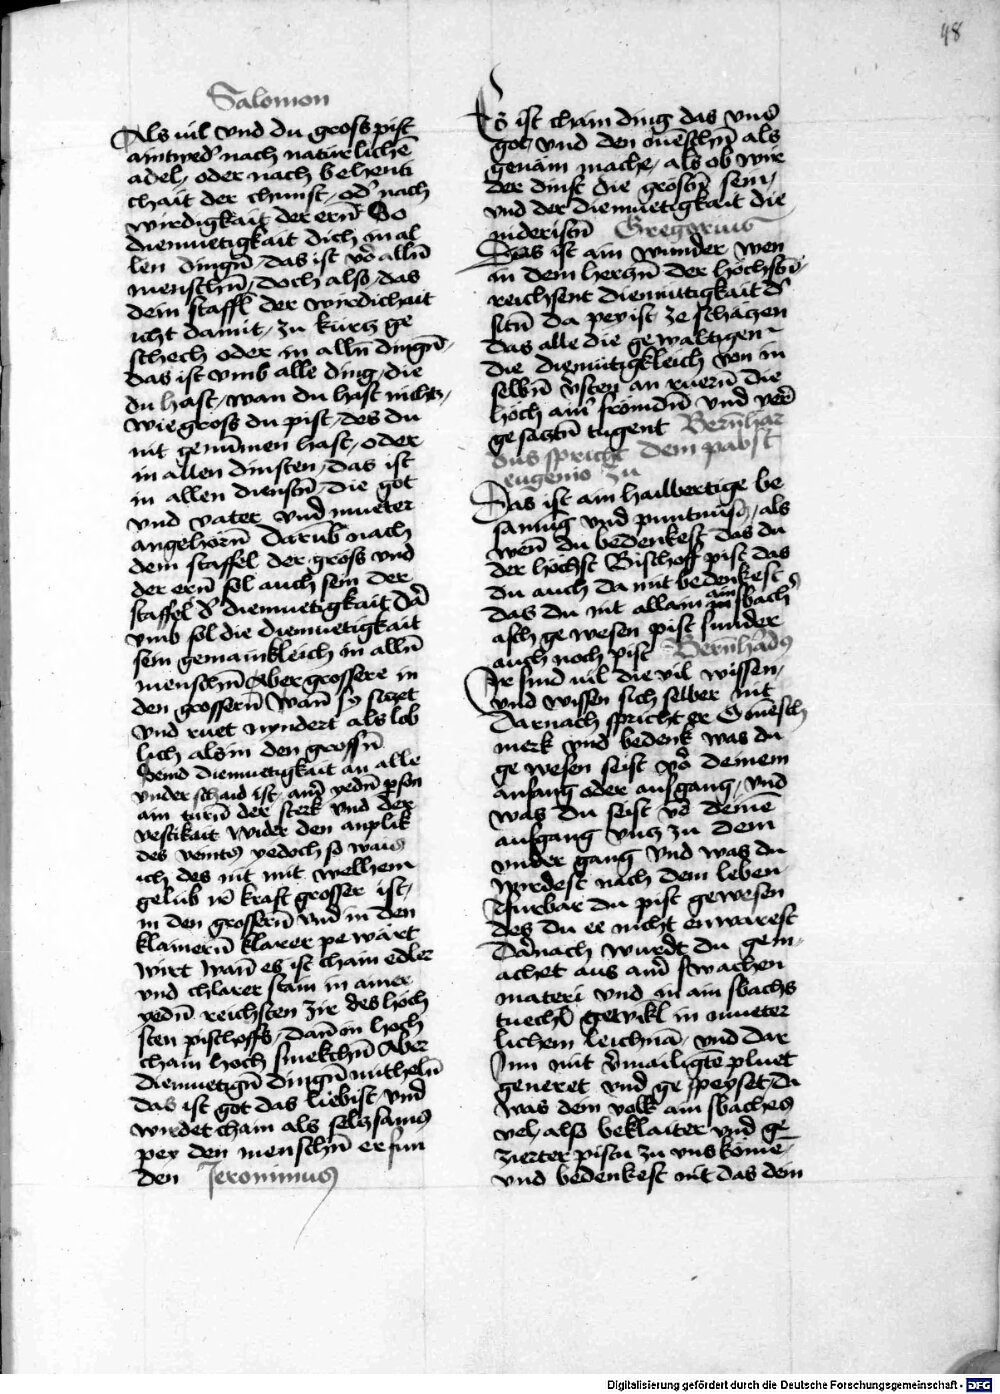 48
Salomon
Als uil vnd du gross pist
aintwed' nach naturlichē
adel, oder nach behenti
chait der chunst, od' nach
wirdigkait der ern̄ So
diemuetigkait dich in al
len dingn̄, das ist vo̅ alln̄
menschn̄, doch also, das
dein staffl der wirdichait
icht damit, zu kurtz ge
schech oder in alln̄ dingn̄,
das ist vmb alle ding, die
du hast, wan du hast nichtz,
wie gross du pist, des du
nit genūmen hast, oder
in allen dinsten, das ist
in allen dienstn̄, die got
vnd vater vnd mueter
angehörn̄ Darub̄ nach
dem staffel der gröss vnd
der ern̄ sol auch sein der
staffel d' diemuetigkait Dar̄
vmb sol die diemuetigkait
sein gemainkleich in alln̄
menschn̄ Aber grossere in
den grossern̄ Wan̄ sy sitzet
vnd ruet nyndert als lob
lich als in den grossn̄
Seind diemuetigkait an alle
vnderschaid ist, ain' yedn̄ pson
ain turn̄ der sterk vnd der
vestikait wider den anplik
des veints yedoch so wais
ich des nit mit welhem
gelub ir' kraft grosser ist,
in den grossern̄ vnd in den
klainern̄ klarer pewärt
wirt Wan̄ es ist chain edler
vnd chlarer stain in ainer
yedn̄ reichsten zir des höch
sten pischoffs, Dan̄ in hoch
chain hoch smekchn̄ Aber
diemuetign̄ dingn̄ mitheln̄
das ist got das liebist, vnd
wirdet chain als seltzsams
pey den menschn̄ erfun
den Jeronimus
Es ist chain ding das vns
got, vnd den menschn̄ als
genäm mache, als ob wir
der dinst die grösstn̄ sein,
vnd der diemuetigkait die
nideristn̄ Gregorius
Das ist ain wunder wen
in dem hertzn̄ der höchstn̄,
reichsent diemutigkait d'
sitn̄ da pey ist ze schätzen
das alle die gewaltigen
die diemutigkleich von in
selbn̄ v'sten an ruern̄ die
höch ain' frömdn̄ vnd ver̄
gesatztn̄ tugent Bern̄har
dus spricht dem pabst
eugenio zu
Das ist ain hailbertige be
samūg vnd puntnus̄, als
wen̄ du bedenkest das du
der höchst Bischoff pist das
du auch da mit bedenkest
das du nit allain ain sbach'
asch gewesen pist sunder
auch noch pist Bern̄hadus
Ir sind uil die vil wissen,
vnd wissen sich selber nit
Darnach spricht er O mēsch
merk vnd bedenk was du
gewesen seist vo̅ deinem
anfang oder aufgang, vnd
was du seist vo̅ deinē
aufgang vntz zu dem
vnder gang vnd was du
wirdest nach dem leben
Furbar du pist gewesen
des du ee nicht enwarest
Darnach wurdst du gem
achet aus ain' swachen
materi vnd in ain sbachs
tuechl gewikl in mueter
lichem leichnā, vnd dar
Inn mit v'mailigtē pluet
generet vnd gespeyset, da
was dem volk ain sbaches
veh, also beklaiter vnd ge
zierter pistu zu vns kömē
vnd bedenkest nit das dein
Digitalisierung gefördert durch die Deutsche Forschungsgemeinschaft - DFG